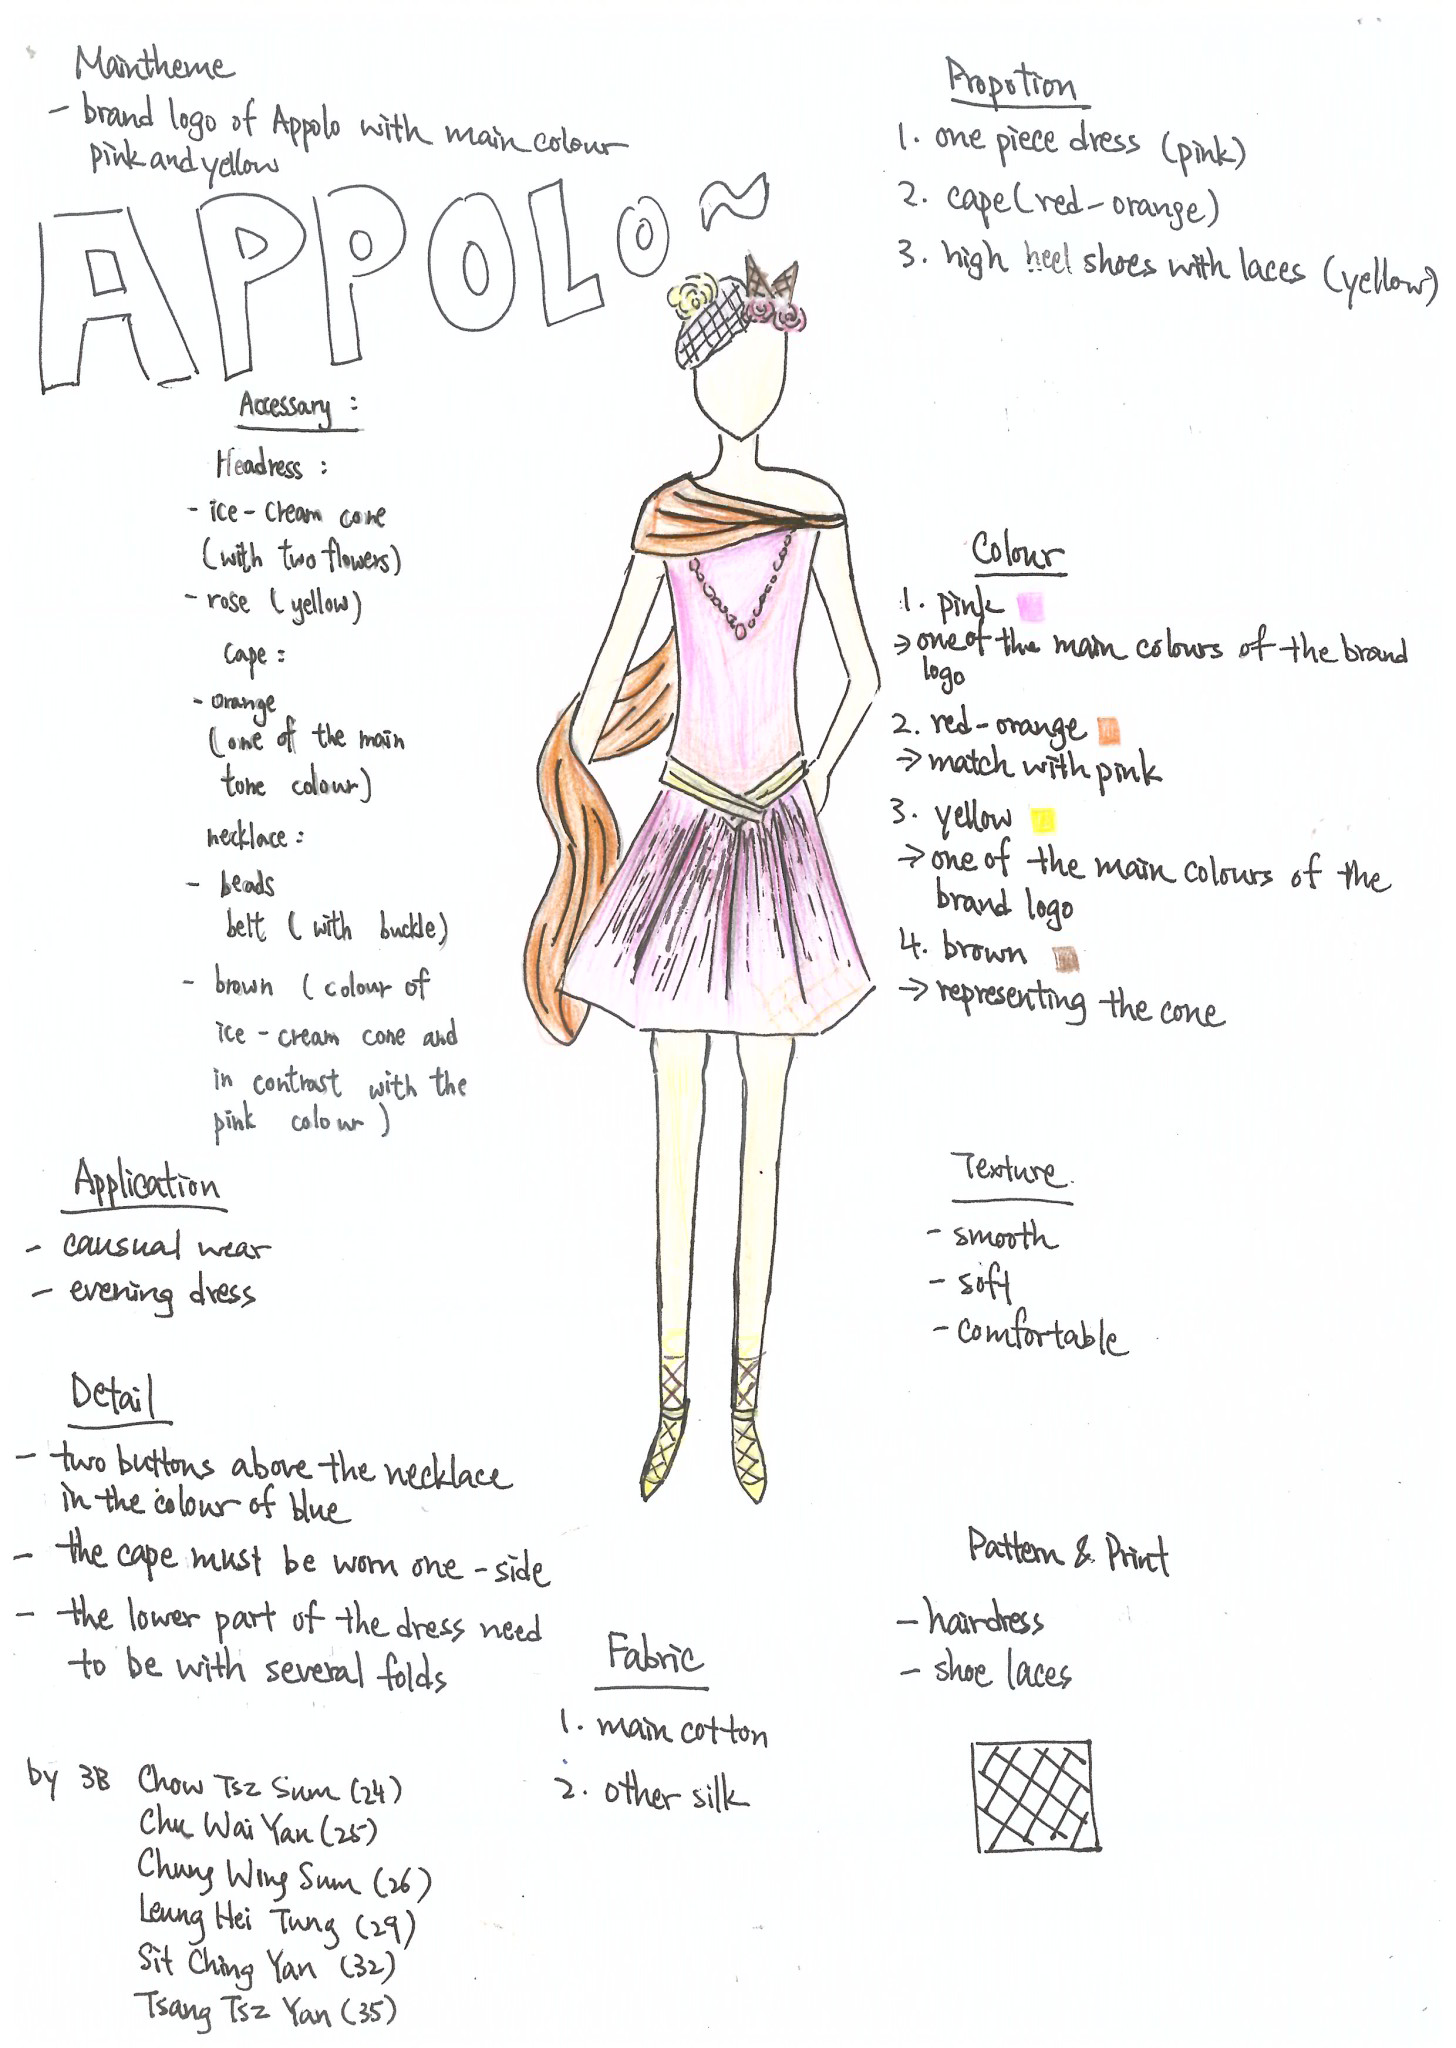 Maintheme
- brand logo of Appolo with main colour
pink and yellow
APPOLO~
Accessary :
Headress :
- ice-cream cone
(with two flowers)
- rose (yellow)
cape :
- orange
(one of the main
tone colour)
necklace :
- beads
belt (with buckle)
- brown (colour of
ice-cream cone and
in contrast with the
pink colour)
Application
- causual wear
- evening dress
Detail
- two buttons above the necklace
in the colour of blue
- the cape must be worn one-side
- the lower part of the dress need
to be with several folds
by 3B Chow Tsz Sum (24)
Chu Wai Yan (25)
Chung Wing Sum (26)
Leung Hei Tung (29)
Sit Ching Yan (32)
Tsang Tsz Yan (35)
Fabric
1. main cotton
2. other silk
Propotion
1. one piece dress (pink)
2. cape (red-orange)
3. high heel shoes with laces (yellow)
Colour
1. pink
→ one of the main colours of the brand
logo
2. red-orange
→ match with pink
3. yellow
→ one of the main colours of the
brand logo
4. brown
→ representing the cone
Texture
- smooth
- soft
- comfortable
Pattern & Print
- hairdress
- shoe laces